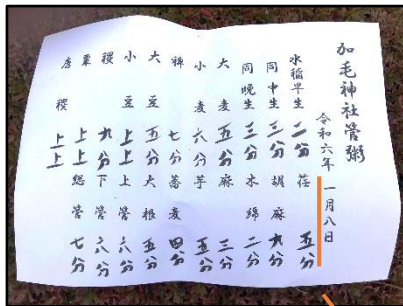 加毛神社管粥
令和六年 一月八日
水稲早生 二分 荏 五分
同中生 三分 胡麻 九分
同晩生 三分 木綿 二分
大麦 五分 麻 三分
小麦 六分 芋 五分
稗 七分 蕎麦 四分
大豆 五分 大根 五分
小豆 上上 上管 六分
稷 九分 下管 八分
粟 上上 総管 七分
唐稷 上上